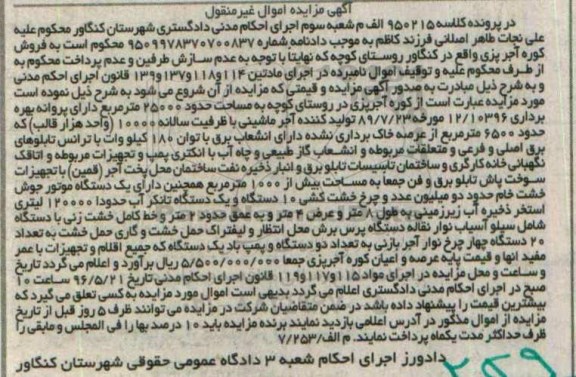 آگهی مزایده اموال غیرمنقول
در پرونده کلاسه ۹۵۰۲۱۵ الف م شعبه سوم اجرای احکام مدنی دادگستری شهرستان کنگاور محکوم علیه
علی نجات طاهر اصلانی فرزند کاظم به موجب دادنامه شماره ۹۵۰۹۹۷۸۳۷۰۷۰۰۸۳۷ محکوم است به فروش
کوره آجر پزی واقع در کنگاور روستای کوچه که نهایتا با توجه به عدم سازش طرفین و عدم پرداخت محکوم به
از طرف محکوم علیه و توقیف اموال نامبرده در اجرای مادتین ۱۱۴و۱۱۸و۱۳۷و۱۳۹ قانون اجرای احکام مدنی
و به شرح ذیل مبادرت به صدور آگهی مزایده و قیمتی که مزایده از آن شروع می شود به شرح ذیل نموده است
مورد مزایده عبارت است از کوره آجرپزی در روستای کوچه به مساحت حدود ۲۵۰۰۰ مترمربع دارای پروانه بهره
برداری ۱۲/۱۰۳۹۶ مورخه ۸۹/۷/۲۳ تولید کننده آجر ماشینی با ظرفیت سالانه ۱۰۰۰۰ (واحد هزار قالب) که
حدود ۶۵۰۰ مترمربع از عرصه خاک برداری نشده دارای انشعاب برق با توان ۱۸۰ کیلو وات با ترانس تابلوهای
برق اصلی و فرعی و متعلقات مربوطه و انشعاب گاز طبیعی و چاه آب با الکتری پمپ و تجهیزات مربوطه و اتاقک
نگهبانی خانه کارگری و ساختمان تاسیسات تابلو برق و انبار ذخیره نفت ساختمان محل پخت آجر (قمین) با تجهیزات
سوخت پاش تابلو برق و فن جمعا به مساحت بیش از ۱۰۰۰ مترمربع همچنین دارای یک دستگاه موتور جوش
خشت خام حدود دو میلیون عدد و چرخ خشت کشی ۱۰ دستگاه و یک دستگاه تانکر آب حدودا ۱۲۰۰۰۰ لیتری
استخر ذخیره آب زیرزمینی به طول ۸ متر و عرض ۴ متر و به عمق حدود ۲ متر و خط کامل خشت زنی با دستگاه
شامل سیلو آسیاب نوار نقاله دستگاه پرس برش محل انتظار و لیفتراک حمل خشت و گاری حمل خشت به تعداد
۲۰ دستگاه چهار چرخ نوار آجر بازنی به تعداد دو دستگاه و پمپ باد یک دستگاه که جمیع اقلام و تجهیزات با عمر
مفید انها و قیمت پایه عرصه و اعیان کوره آجرپزی جمعا ۵/۵۰۰/۰۰۰/۰۰۰ ریال برآورد و اعلام می گردد تاریخ
و ساعت و محل مزایده در اجرای مواد ۱۱۵و۱۱۷و۱۱۹ قانون اجرای احکام مدنی تاریخ ۹۶/۵/۲۱ ساعت ۱۰
صبح در اجرای احکام مدنی دادگستری اعلام می گردد بدیهی است اموال مورد مزایده به کسی تعلق می گیرد که
بیشترین قیمت را پیشنهاد داده باشد در ضمن متقاضیان شرکت در مزایده می توانند ظرف ۵ روز قبل از تاریخ
مزایده از اموال مذکور در آدرس اعلامی بازدید نمایند برنده مزایده باید ۱۰ درصد بها را فی المجلس و مابقی را
ظرف حداکثر مدت یکماه پرداخت نمایند. م الف/۷/۲۵۳
دادورز اجرای احکام شعبه ۳ دادگاه عمومی حقوقی شهرستان کنگاور